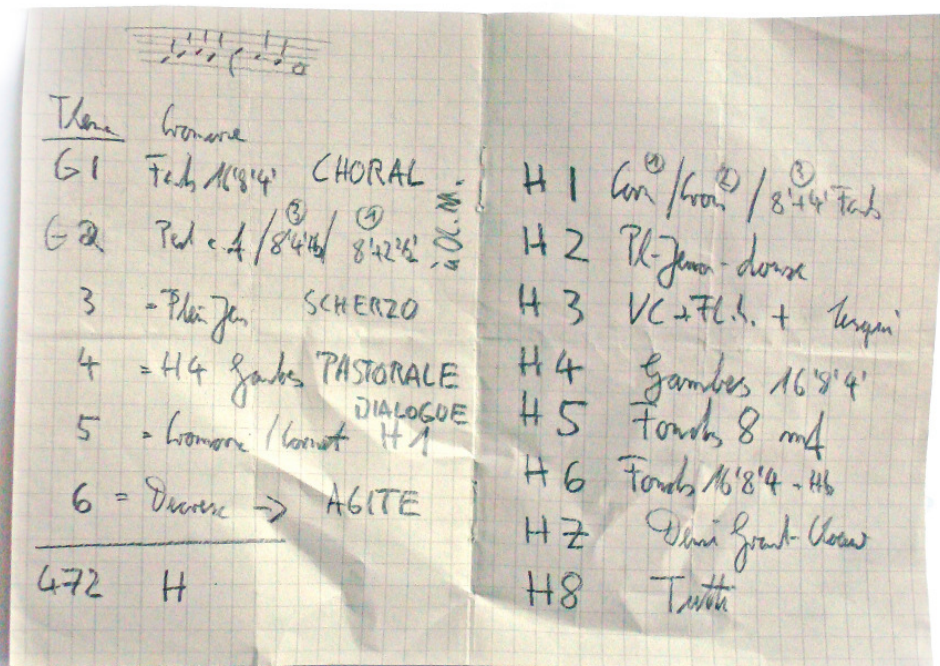 Thema Cromorne
G1 Fonds 16'8'4' CHORAL
G2 Ped c.f / ③ 8'4'Hb / ① 8'+2⅔'
3 = Plein Jeu SCHERZO
4 = H4 Gambes PASTORALE
DIALOGUE
5 = Cromorne / Cornet H1
6 = Decresc → AGITE
472 H
H1 Corn ① / Crom ② / ③ 8'+4' Fonds
H2 Pl-Jeu - doux
H3 VC + Fl.h. +
H4 Gambes 16'8'4'
H5 Fonds 8 mf
H6 Fonds 16'8'4 - Hb
H7 Demi Grand-Choeur
H8 Tutti